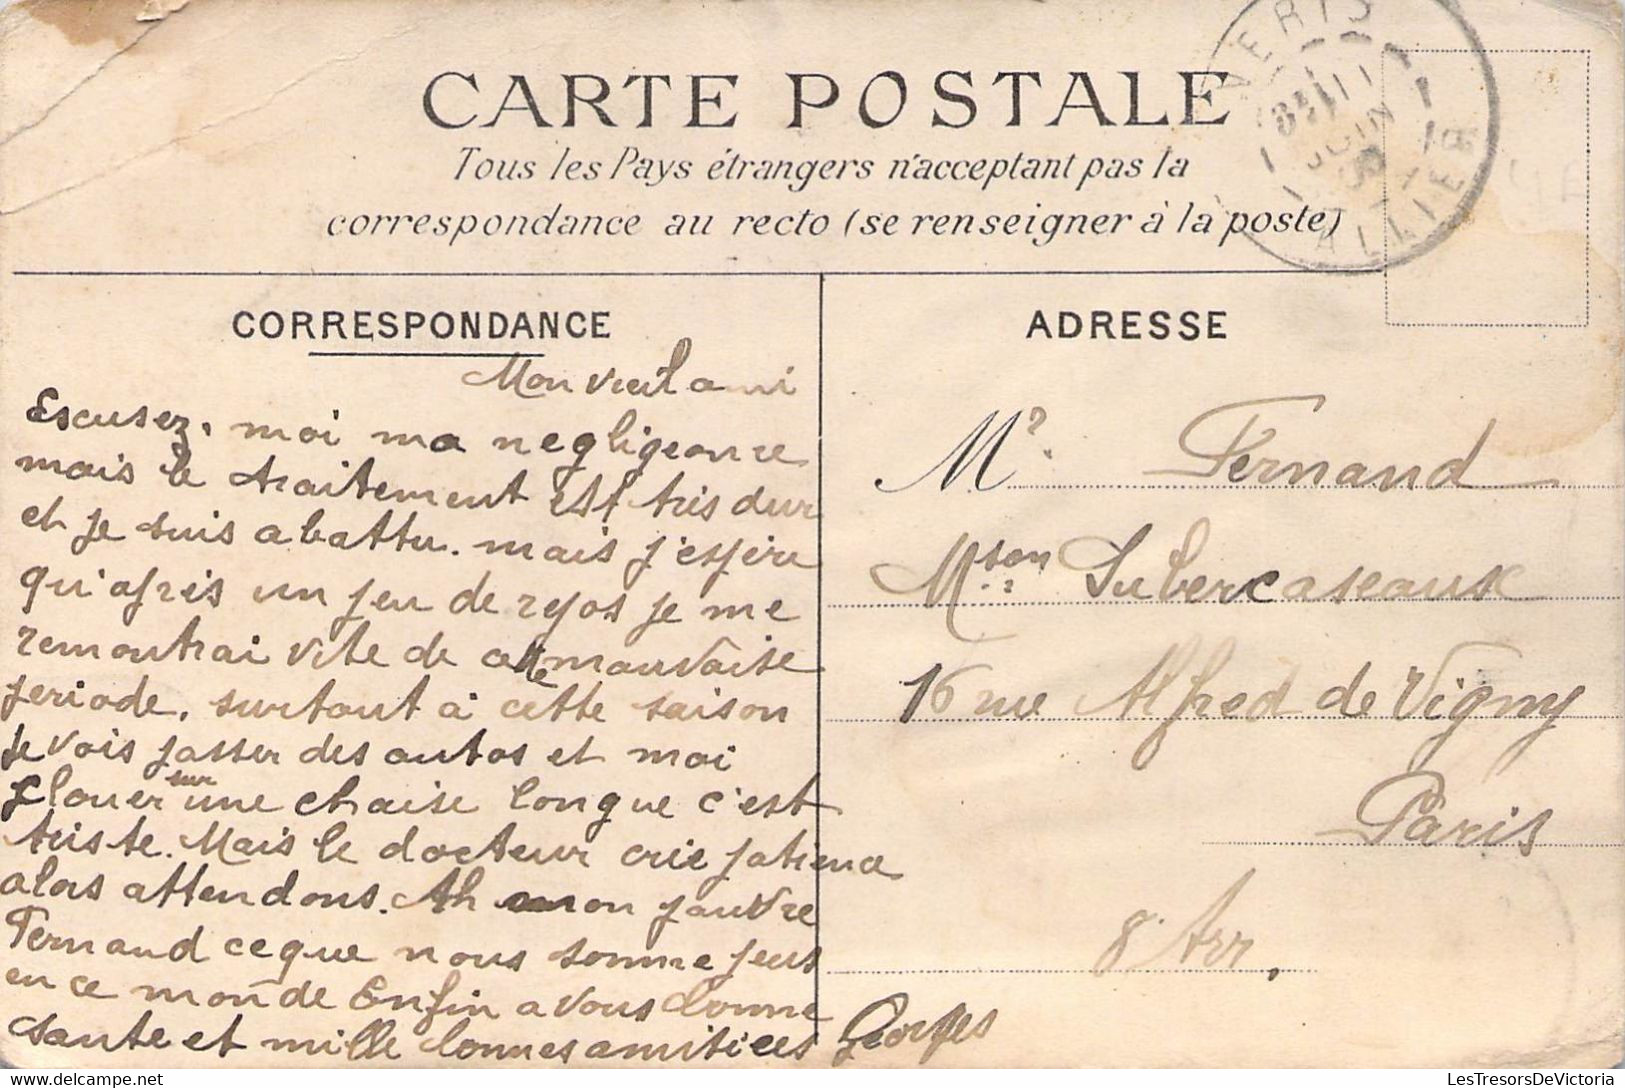 CARTE POSTALE
Tous les Pays étrangers n'acceptant pas la
correspondance au recto (se renseigner à la poste)
NERIS
JUIN
ALLIER
CORRESPONDANCE
Mon vieil ami
Escusez, moi ma negligeance
mais le traitement est tres dur
et je suis abattu. mais j'espère
qu'apres un peu de repos je me
remontrai vite de cette mauvaise
periode, surtout à cette saison
je vois passer des autos et moi
plouer sur une chaise longue c'est
triste. Mais le docteur crie patience
alors attendons. Ah mon pauvre
Fernand ceque nous somme peus
en ce monde Enfin a vous bonne
sante et mille bonnes amitiees Georges
ADRESSE
Mr. Fernand
Mson Subercaseaux
16 rue Alfred de Vigny
Paris
8 Arr.
LesTresorsDeVictoria